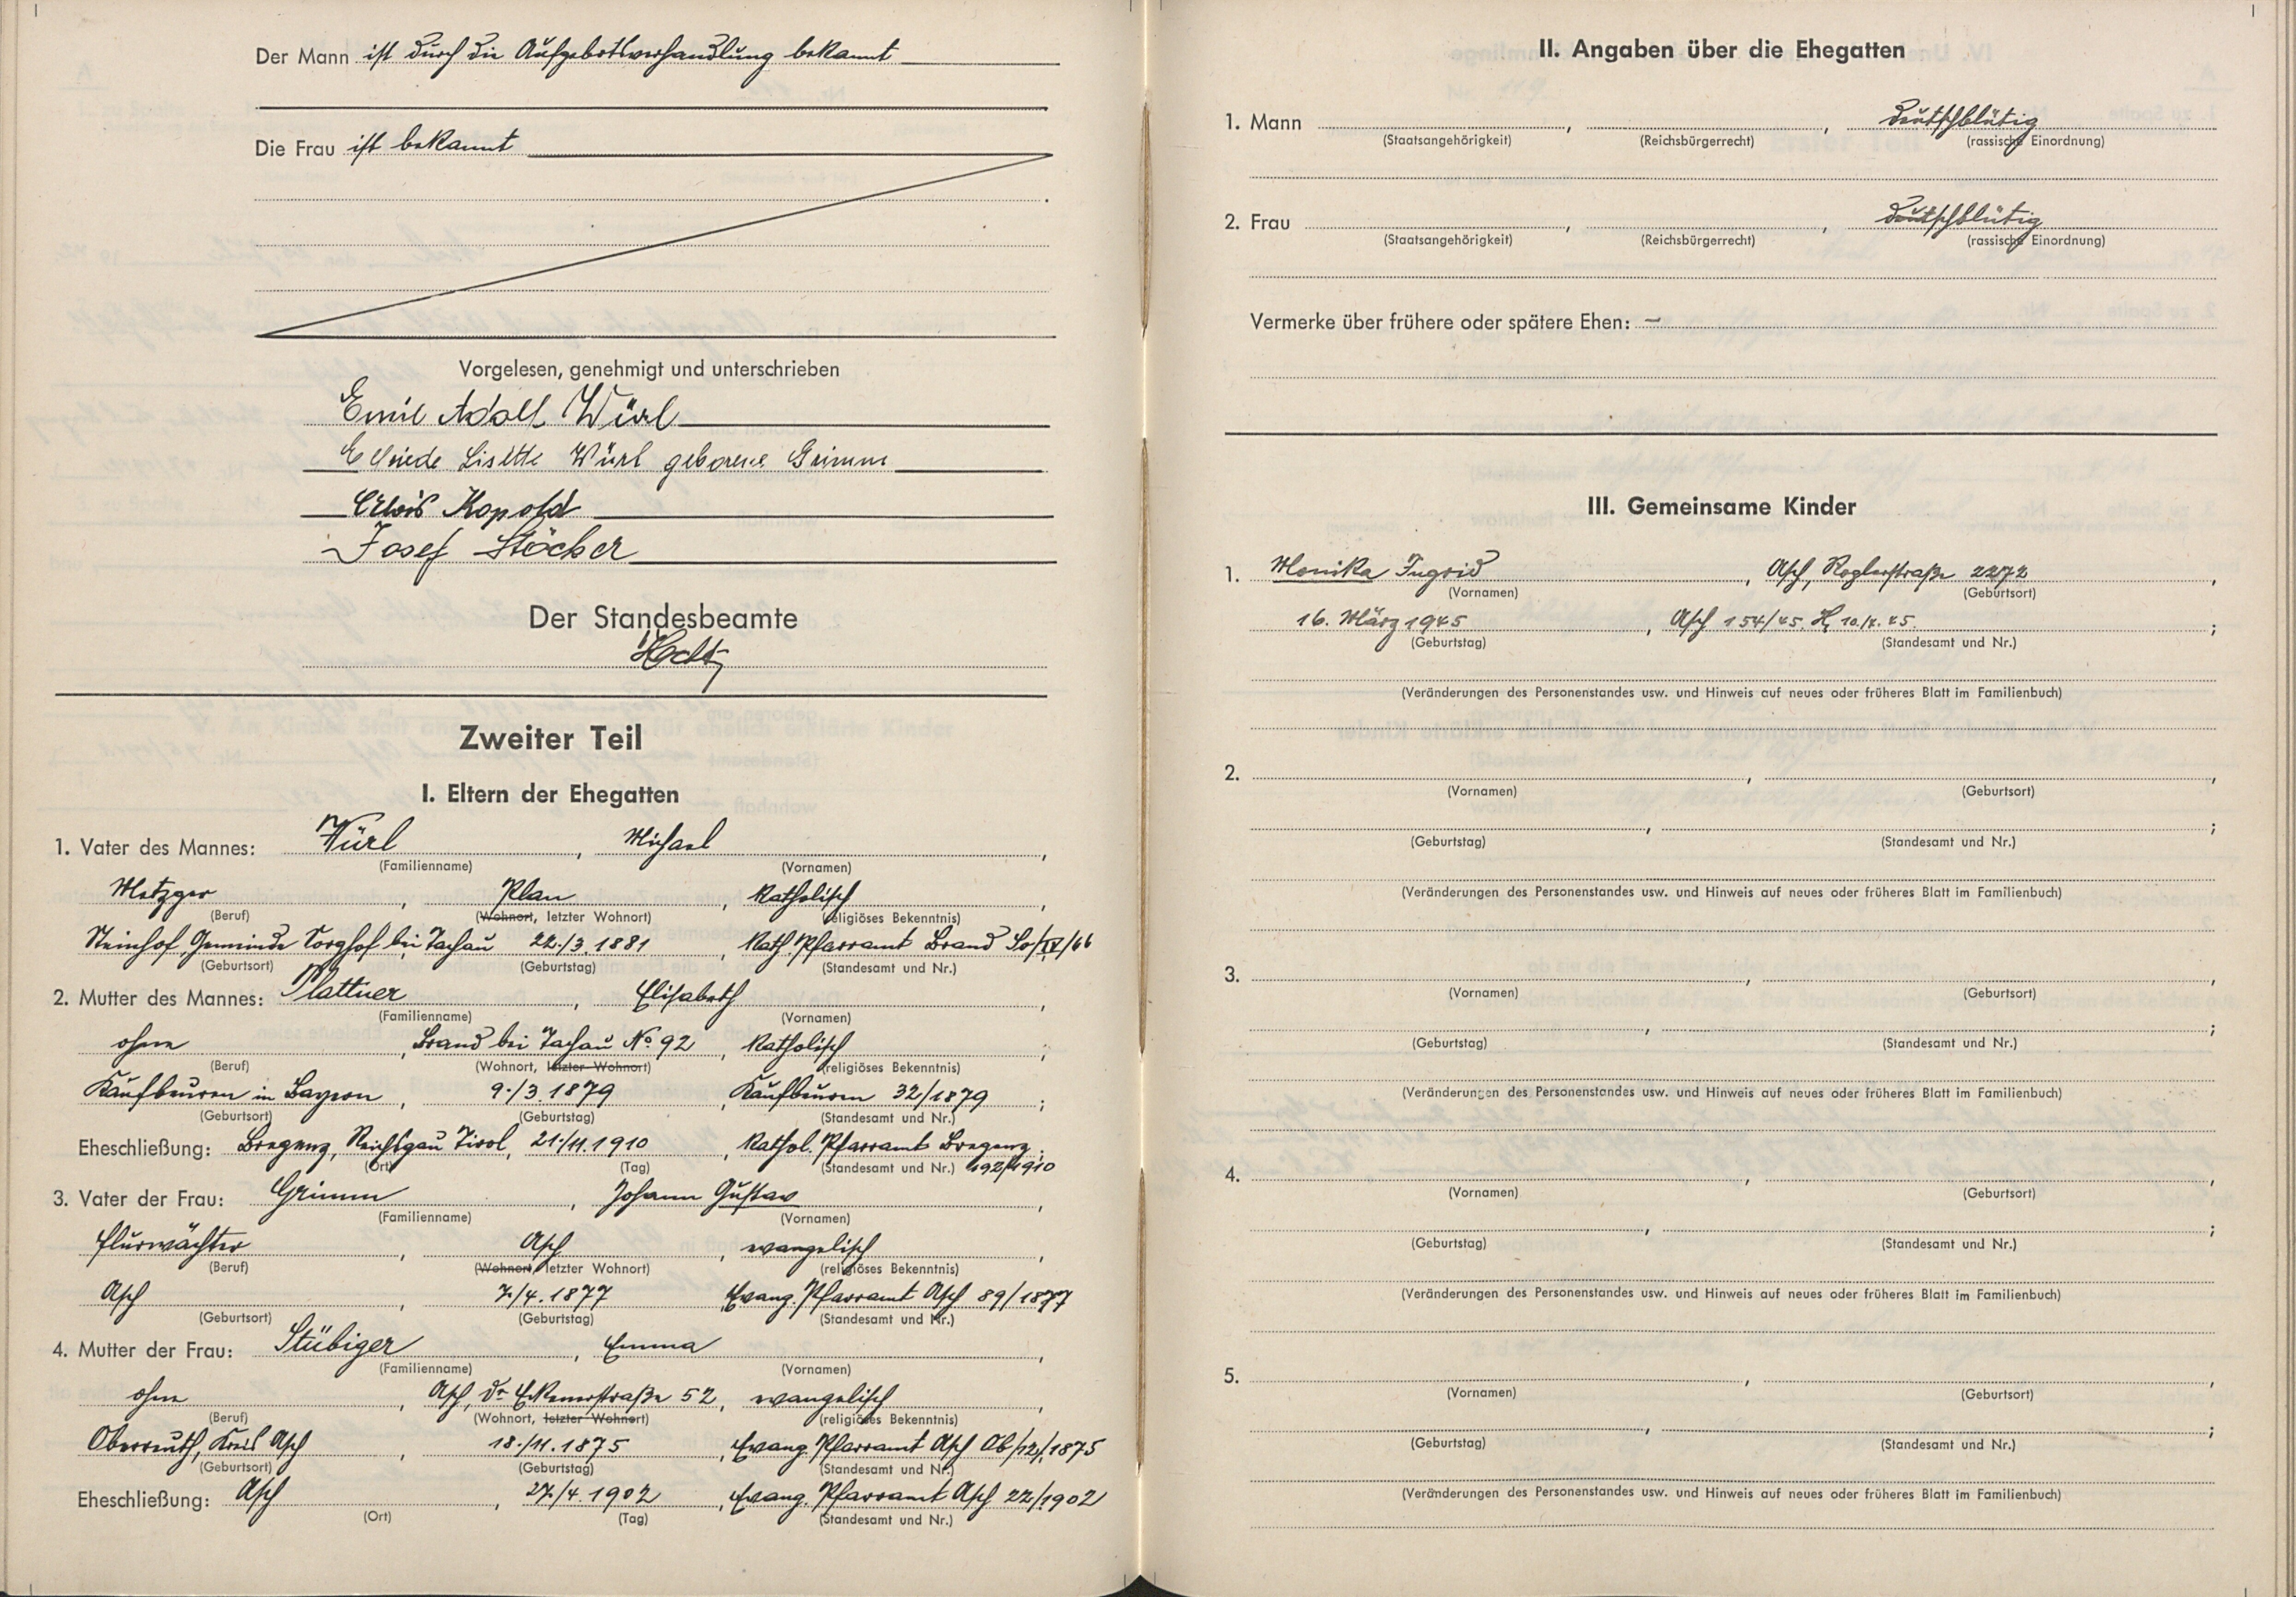 Der Mann ist durch die Aufgebotsverhandlung bekannt
Die Frau ist bekannt
Vorgelesen, genehmigt und unterschrieben
Emil Adolf Würl
Elfriede Lisette Würl geborene Grimm
Alois Kopold
Josef Stöcker
Der Standesbeamte
Zweiter Teil
I. Eltern der Ehegatten
1. Vater des Mannes: Würl, Michael,
(Familienname) (Vornamen)
Metzger, Plan, katholisch,
(Beruf) (Wohnort, letzter Wohnort) (religiöses Bekenntnis)
Steinhof, Gemeinde Sorghof bei Tachau 22./3.1881, Kath. Pfarramt Brand So/IV/66
(Geburtsort) (Geburtstag) (Standesamt und Nr.)
2. Mutter des Mannes: Plattner, Elisabeth,
(Familienname) (Vornamen)
ohne, Brand bei Tachau No. 92, katholisch;
(Beruf) (Wohnort, letzter Wohnort) (religiöses Bekenntnis)
Kaufbeuren in Bayern, 9./3.1879, Kaufbeuren 32/1879;
(Geburtsort) (Geburtstag) (Standesamt und Nr.)
Eheschließung: Bregenz, Reichsgau Tirol, 21./11.1910, Kathol. Pfarramt Bregenz;
(Ort) (Tag) (Standesamt und Nr.) 192/1910
3. Vater der Frau: Grimm, Johann Gustav,
(Familienname) (Vornamen)
Flurwächter, Asch, evangelisch,
(Beruf) (Wohnort, letzter Wohnort) (religiöses Bekenntnis)
Asch, 7./4.1877, Evang. Pfarramt Asch 89/1877
(Geburtsort) (Geburtstag) (Standesamt und Nr.)
4. Mutter der Frau: Stübiger, Emma,
(Familienname) (Vornamen)
ohne, Asch, Dr. Eckenerstraße 52, evangelisch,
(Beruf) (Wohnort, letzter Wohnort) (religiöses Bekenntnis)
Oberreuth, Kreis Asch, 18./11.1875, Evang. Pfarramt Asch Ob/12/1875
(Geburtsort) (Geburtstag) (Standesamt und Nr.)
Eheschließung: Asch, 27./4.1902, Evang. Pfarramt Asch 22/1902
(Ort) (Tag) (Standesamt und Nr.)
II. Angaben über die Ehegatten
1. Mann , , deutschblütig
(Staatsangehörigkeit) (Reichsbürgerrecht) (rassische Einordnung)
2. Frau , , deutschblütig
(Staatsangehörigkeit) (Reichsbürgerrecht) (rassische Einordnung)
Vermerke über frühere oder spätere Ehen: –
III. Gemeinsame Kinder
1. Monika Ingrid, Asch, Roglerstraße 2272,
(Vornamen) (Geburtsort)
16. März 1945, Asch 154/45. ;
(Geburtstag) (Standesamt und Nr.)
(Veränderungen des Personenstandes usw. und Hinweis auf neues oder früheres Blatt im Familienbuch)
2. , ,
(Vornamen) (Geburtsort)
, ;
(Geburtstag) (Standesamt und Nr.)
(Veränderungen des Personenstandes usw. und Hinweis auf neues oder früheres Blatt im Familienbuch)
3. , ,
(Vornamen) (Geburtsort)
, ;
(Geburtstag) (Standesamt und Nr.)
(Veränderungen des Personenstandes usw. und Hinweis auf neues oder früheres Blatt im Familienbuch)
4. , ,
(Vornamen) (Geburtsort)
, ;
(Geburtstag) (Standesamt und Nr.)
(Veränderungen des Personenstandes usw. und Hinweis auf neues oder früheres Blatt im Familienbuch)
5. , ,
(Vornamen) (Geburtsort)
, ;
(Geburtstag) (Standesamt und Nr.)
(Veränderungen des Personenstandes usw. und Hinweis auf neues oder früheres Blatt im Familienbuch)